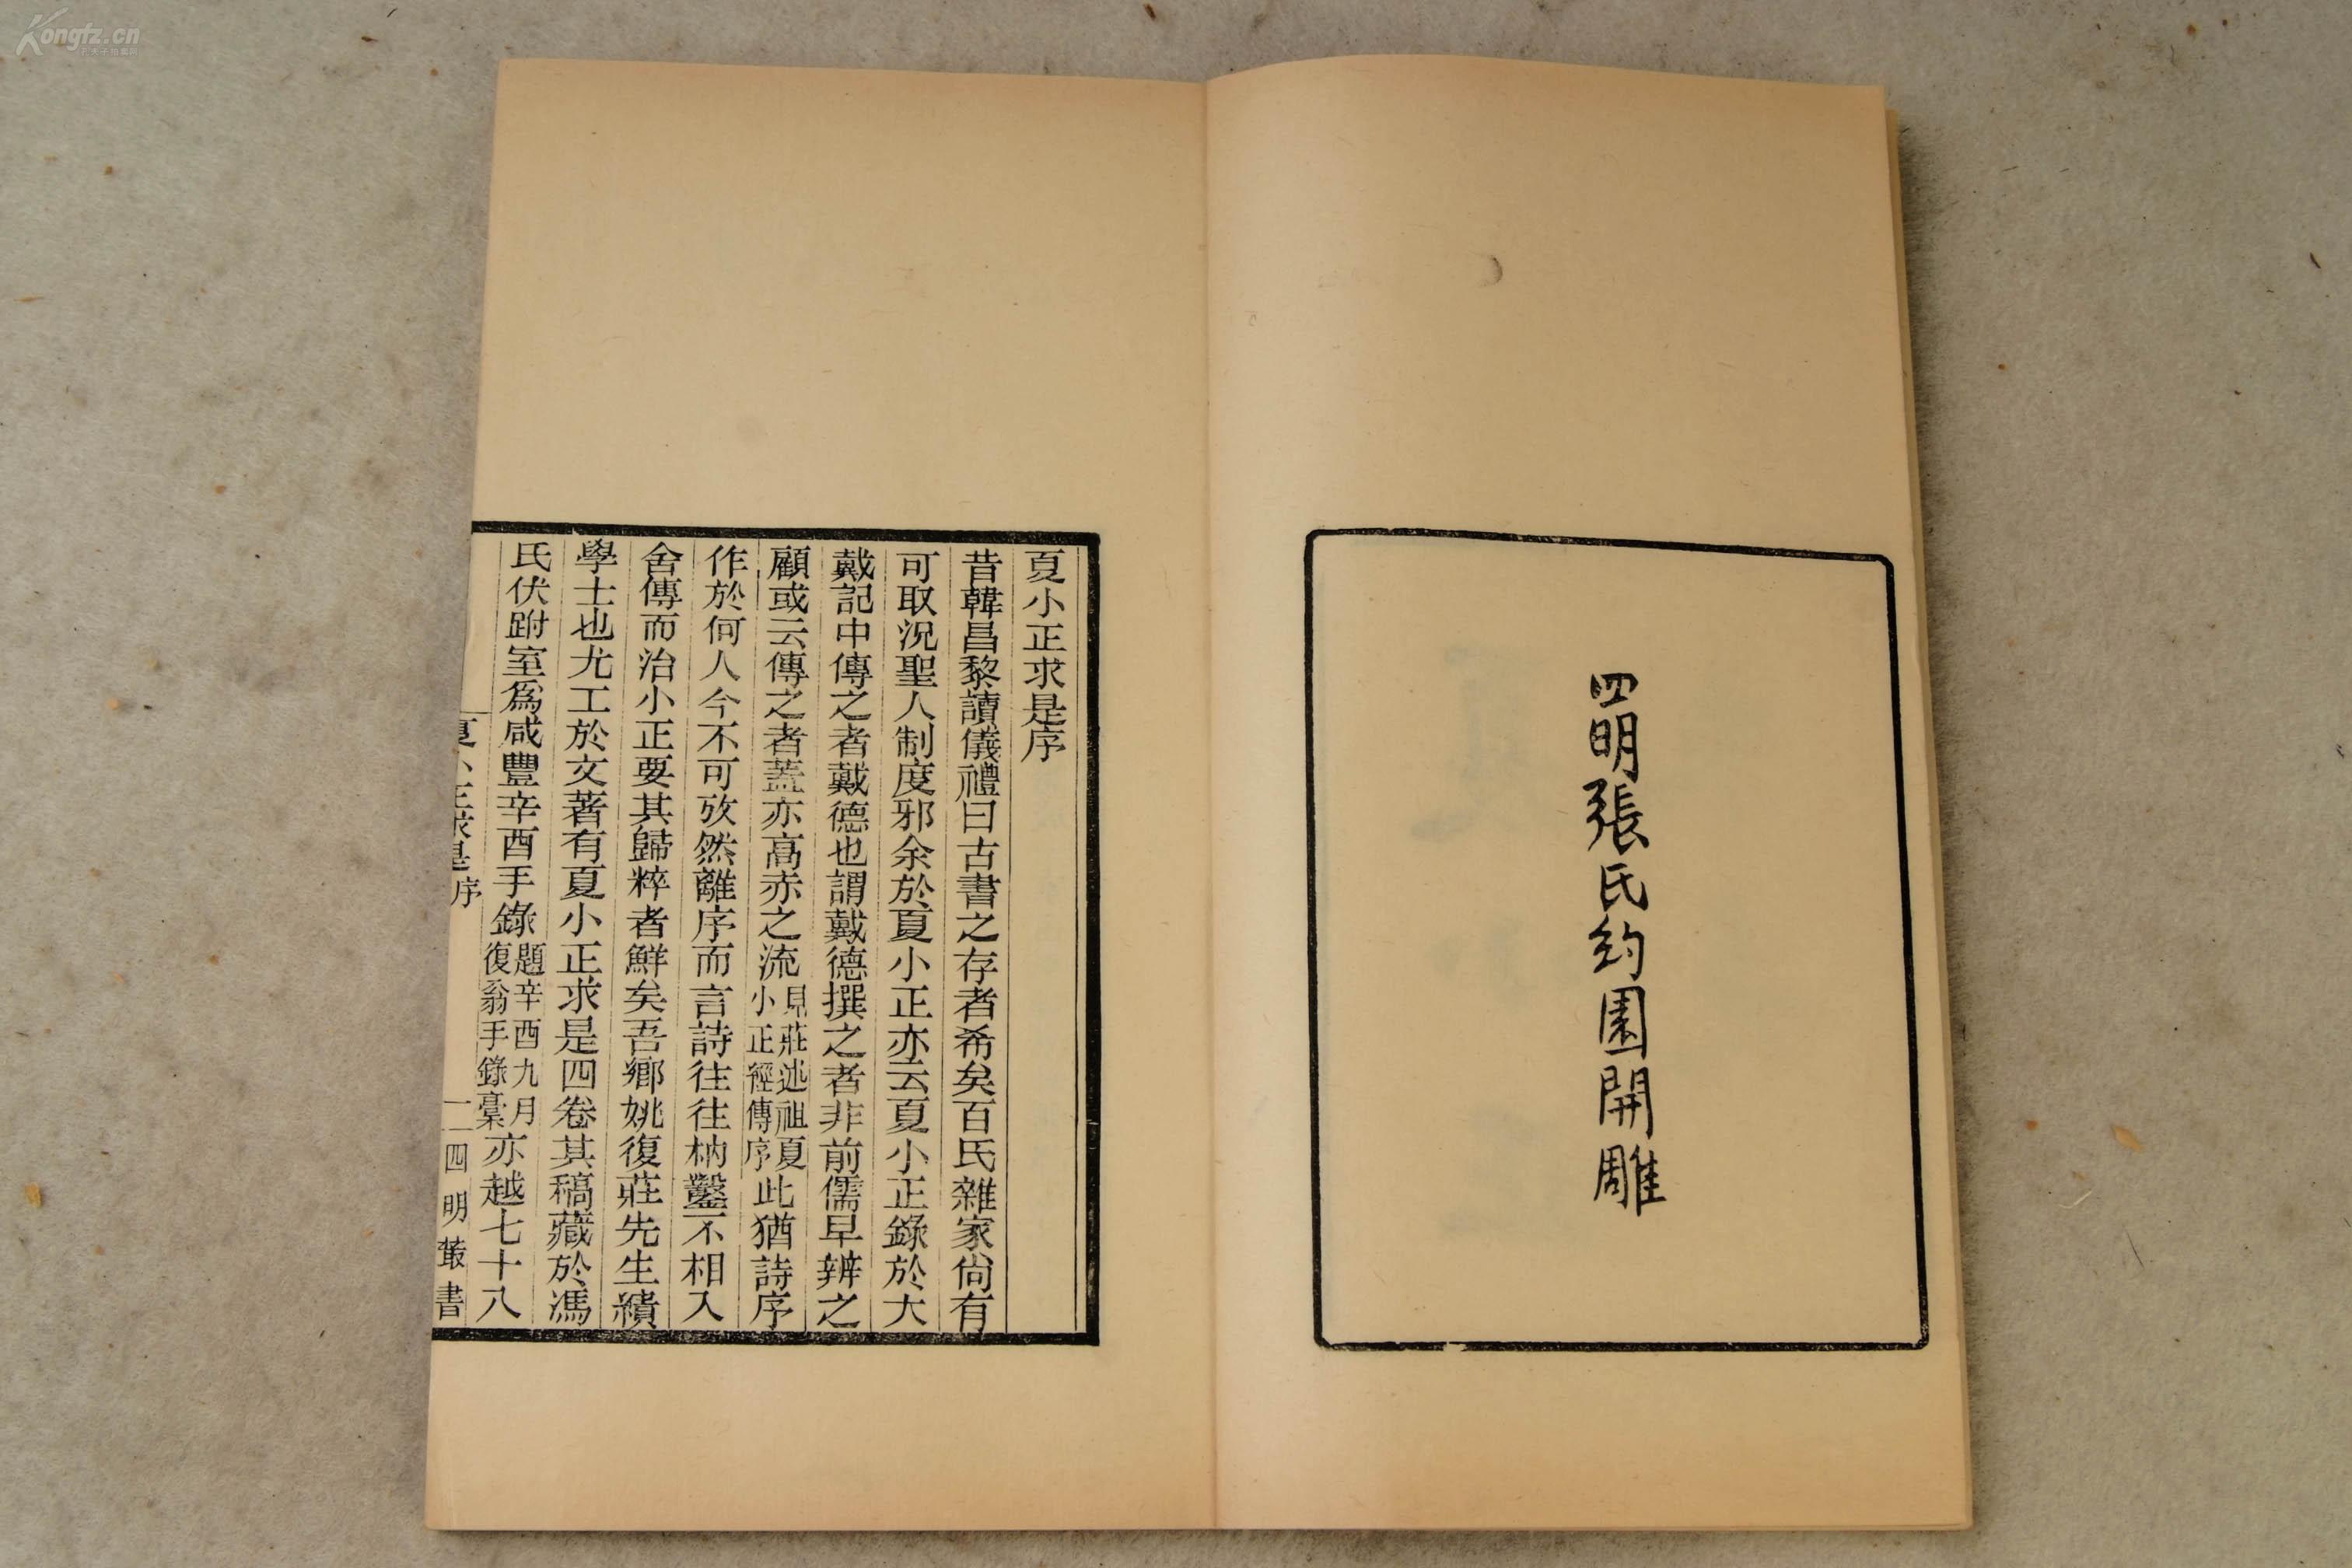 Kongfz.cn
四明張氏約園開雕
夏小正求是序
昔韓昌黎讀儀禮曰古書之存者希矣百氏雜家尙有
可取況聖人制度邪余於夏小正亦云夏小正錄於大
戴記中傳之者戴德也謂戴德撰之者非前儒早辨之
顧或云傳之者蓋亦高赤之流見莊述祖夏小正經傳序此猶詩序
作於何人今不可攷然離序而言詩往往枘鑿不相入
舍傳而治小正要其歸粹者鮮矣吾鄉姚復莊先生績
學士也尤工於文著有夏小正求是四卷其稿藏於馮
氏伏跗室爲咸豐辛酉手錄題辛酉九月復翁手錄稾亦越七十八
夏小正求是序
一
四明叢書